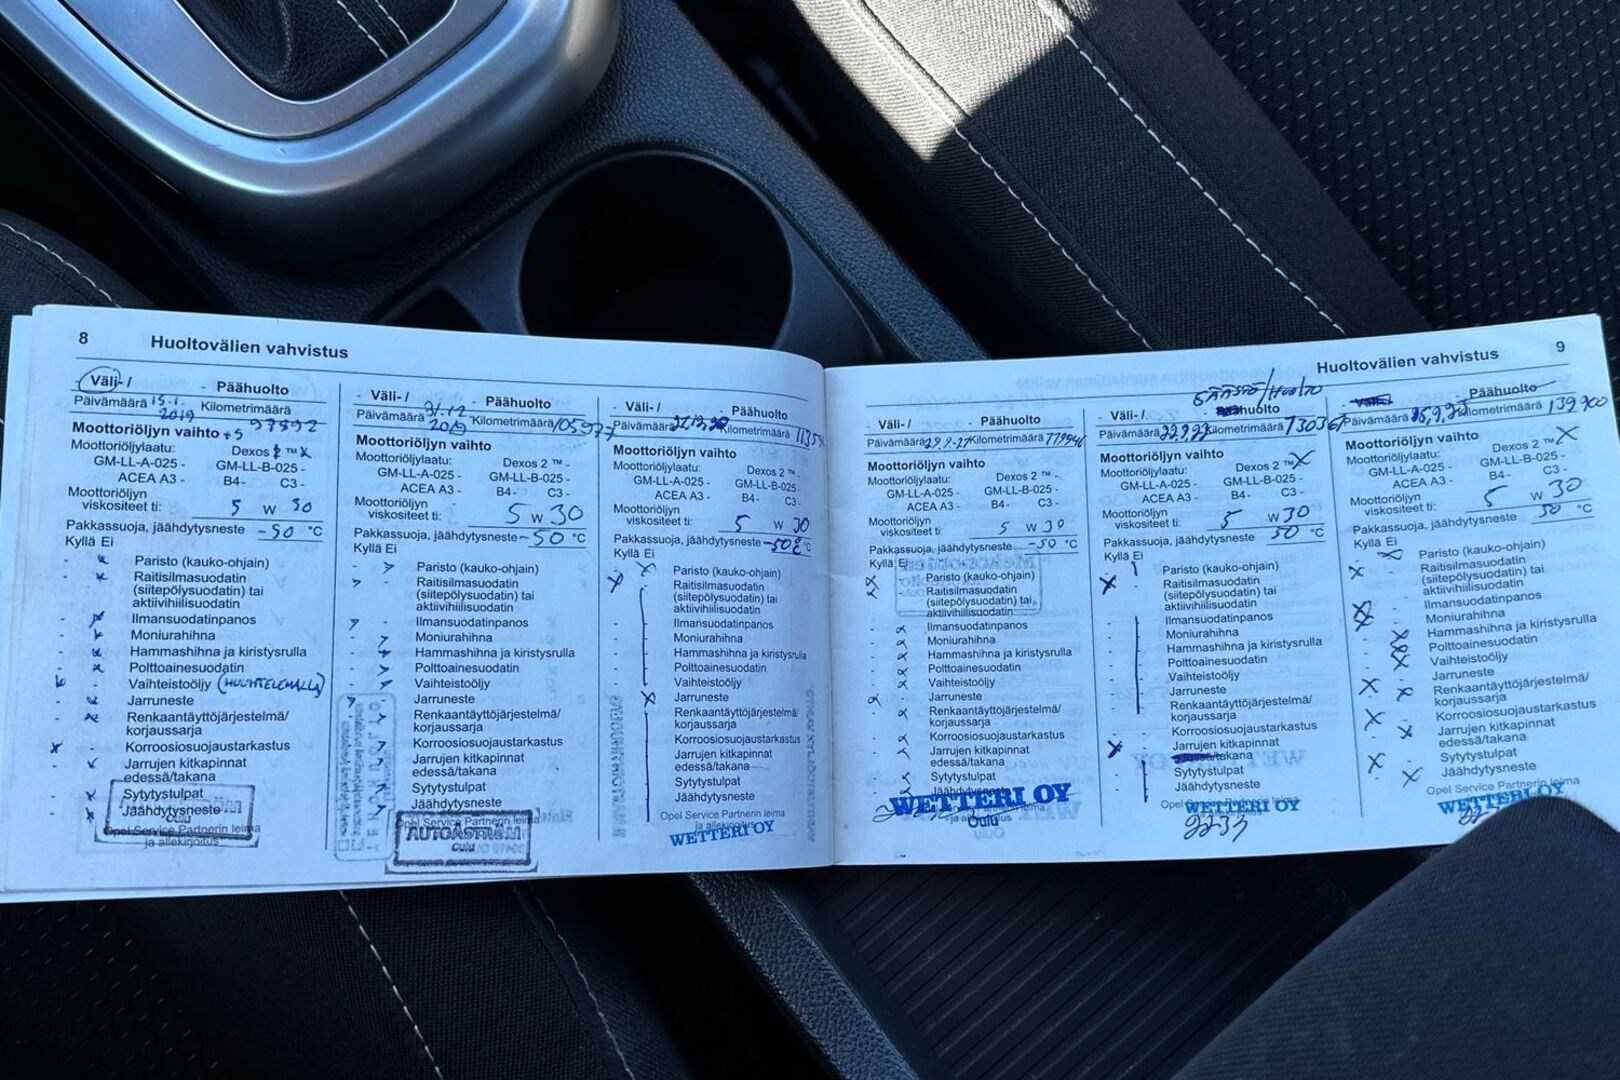 8 Huoltovälien vahvistus
Väli- / - Päähuolto
Päivämäärä 15.1. 2019 Kilometrimäärä 97592
Moottoriöljyn vaihto
Moottoriöljylaatu: Dexos 2 ™ x
GM-LL-A-025 - GM-LL-B-025 -
ACEA A3 - B4- C3 -
Moottoriöljyn
viskositeet ti: 5 W 30
Pakkassuoja, jäähdytysneste -50 °C
Kyllä Ei
Paristo (kauko-ohjain)
Raitisilmasuodatin
(siitepölysuodatin) tai
aktiivihiilisuodatin
Ilmansuodatinpanos
Moniurahihna
Hammashihna ja kiristysrulla
Polttoainesuodatin
Vaihteistoöljy (HUUHTELEMALLA)
Jarruneste
Renkaantäyttöjärjestelmä/
korjaussarja
Korroosiosuojaustarkastus
Jarrujen kitkapinnat
edessä/takana
Sytytystulpat
Jäähdytysneste
Opel Service Partnerin leima
ja allekirjoitus
- Väli- / - Päähuolto
Päivämäärä 31.12 2019 Kilometrimäärä 105977
Moottoriöljyn vaihto
Moottoriöljylaatu: Dexos 2 ™ -
GM-LL-A-025 - GM-LL-B-025 -
ACEA A3 - B4- C3 -
Moottoriöljyn
viskositeet ti: 5 W 30
Pakkassuoja, jäähdytysneste -50 °C
Kyllä Ei
Paristo (kauko-ohjain)
Raitisilmasuodatin
(siitepölysuodatin) tai
aktiivihiilisuodatin
Ilmansuodatinpanos
Moniurahihna
Hammashihna ja kiristysrulla
Polttoainesuodatin
Vaihteistoöljy
Jarruneste
Renkaantäyttöjärjestelmä/
korjaussarja
Korroosiosuojaustarkastus
Jarrujen kitkapinnat
edessä/takana
Sytytystulpat
Jäähdytysneste
Opel Service Partnerin leima
AUTOASTRÖM
Oulu
- Väli- / - Päähuolto
Päivämäärä Kilometrimäärä
Moottoriöljyn vaihto
Moottoriöljylaatu: Dexos 2 ™ -
GM-LL-A-025 - GM-LL-B-025 -
ACEA A3 - B4- C3 -
Moottoriöljyn
viskositeet ti: 5 W 30
Pakkassuoja, jäähdytysneste -50 °C
Kyllä Ei
Paristo (kauko-ohjain)
Raitisilmasuodatin
(siitepölysuodatin) tai
aktiivihiilisuodatin
Ilmansuodatinpanos
Moniurahihna
Hammashihna ja kiristysrulla
Polttoainesuodatin
Vaihteistoöljy
Jarruneste
Renkaantäyttöjärjestelmä/
korjaussarja
Korroosiosuojaustarkastus
Jarrujen kitkapinnat
edessä/takana
Sytytystulpat
Jäähdytysneste
Opel Service Partnerin leima
ja allekirjoitus
WETTERI OY
Huoltovälien vahvistus 9
- Väli- / - Päähuolto
Päivämäärä Kilometrimäärä
Moottoriöljyn vaihto
Moottoriöljylaatu: Dexos 2 ™ -
GM-LL-A-025 - GM-LL-B-025 -
ACEA A3 - B4- C3 -
Moottoriöljyn
viskositeet ti: 5 W 30
Pakkassuoja, jäähdytysneste -50 °C
Kyllä Ei
Paristo (kauko-ohjain)
Raitisilmasuodatin
(siitepölysuodatin) tai
aktiivihiilisuodatin
Ilmansuodatinpanos
Moniurahihna
Hammashihna ja kiristysrulla
Polttoainesuodatin
Vaihteistoöljy
Jarruneste
Renkaantäyttöjärjestelmä/
korjaussarja
Korroosiosuojaustarkastus
Jarrujen kitkapinnat
edessä/takana
Sytytystulpat
Jäähdytysneste
WETTERI OY
Oulu
- Väli- / huolto
Päivämäärä Kilometrimäärä
Moottoriöljyn vaihto
Moottoriöljylaatu: Dexos 2 ™ X
GM-LL-A-025 - GM-LL-B-025 -
ACEA A3 - B4- C3 -
Moottoriöljyn
viskositeet ti: 5 W 30
Pakkassuoja, jäähdytysneste 50 °C
Kyllä Ei
Paristo (kauko-ohjain)
Raitisilmasuodatin
(siitepölysuodatin) tai
aktiivihiilisuodatin
Ilmansuodatinpanos
Moniurahihna
Hammashihna ja kiristysrulla
Polttoainesuodatin
Vaihteistoöljy
Jarruneste
Renkaantäyttöjärjestelmä/
korjaussarja
Korroosiosuojaustarkastus
Jarrujen kitkapinnat
Sytytystulpat
Jäähdytysneste
WETTERI OY
Päähuolto
Päivämäärä Kilometrimäärä 139700
Moottoriöljyn vaihto
Moottoriöljylaatu: Dexos 2 ™ X
GM-LL-A-025 - GM-LL-B-025 -
ACEA A3 - B4- C3 -
Moottoriöljyn
viskositeet ti: 5 W 30
Pakkassuoja, jäähdytysneste 50 °C
Kyllä Ei
Paristo (kauko-ohjain)
Raitisilmasuodatin
(siitepölysuodatin) tai
aktiivihiilisuodatin
Ilmansuodatinpanos
Moniurahihna
Hammashihna ja kiristysrulla
Polttoainesuodatin
Vaihteistoöljy
Jarruneste
Renkaantäyttöjärjestelmä/
korjaussarja
Korroosiosuojaustarkastus
Jarrujen kitkapinnat
edessä/takana
Sytytystulpat
Jäähdytysneste
Opel Service Partnerin leima
WETTERI OY